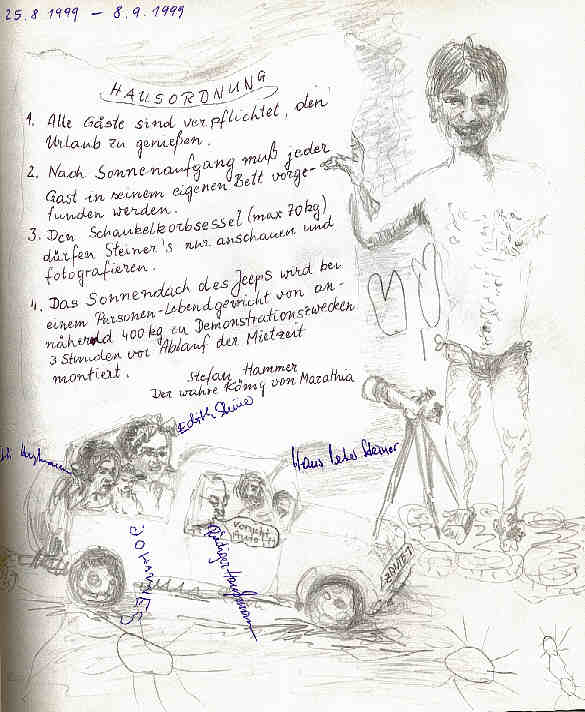 25.8 1999 – 8.9.1999
HAUSORDNUNG
1. Alle Gäste sind verpflichtet, den
Urlaub zu genießen.
2. Nach Sonnenaufgang muß jeder
Gast in seinem eigenen Bett vorge-
funden werden.
3. Den Schaukelkorbsessel (max 70kg)
dürfen Steiner's nur anschauen und
fotografieren.
4. Das Sonnendach des Jeeps wird bei
einem Personen-Lebendgewicht von an-
nähernd 400kg zu Demonstrationszwecken
3 Stunden vor Ablauf der Mietzeit
montiert.
Stefan Hammer
Der wahre König von Marathia
Edith
Hans Peter Steiner
JOHANNES
Rüdiger
Vorsicht